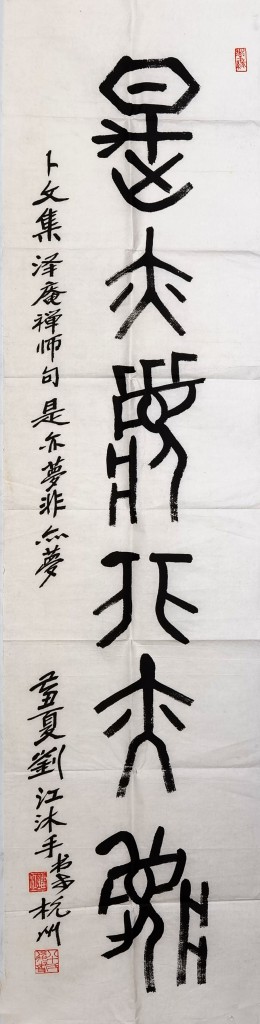 是亦夢非亦夢
卜文集泽庵禅师句 是亦夢非亦夢
丑夏劉江沐手書于杭州